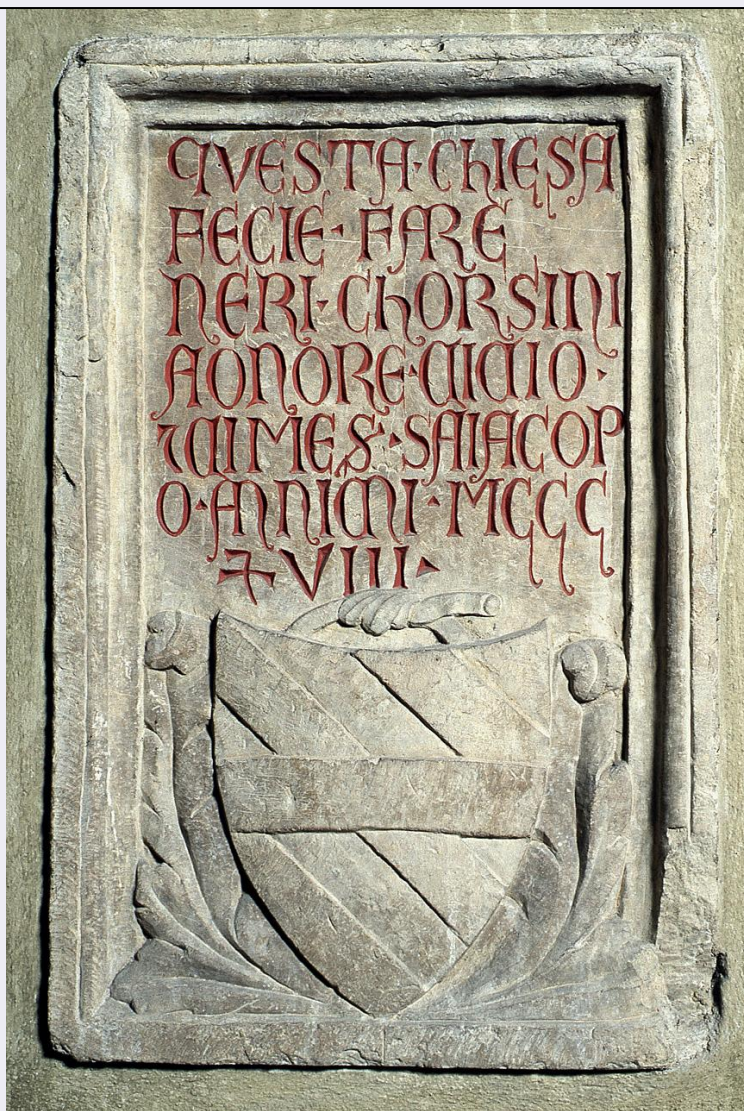 QVESTA·CHIESA
FECIE·FARE
NERI·CHORSINI
AONORE·DIDIO·
7DIMES·SAIACOP
O·ANNIDNI·MCCC
XVIII·